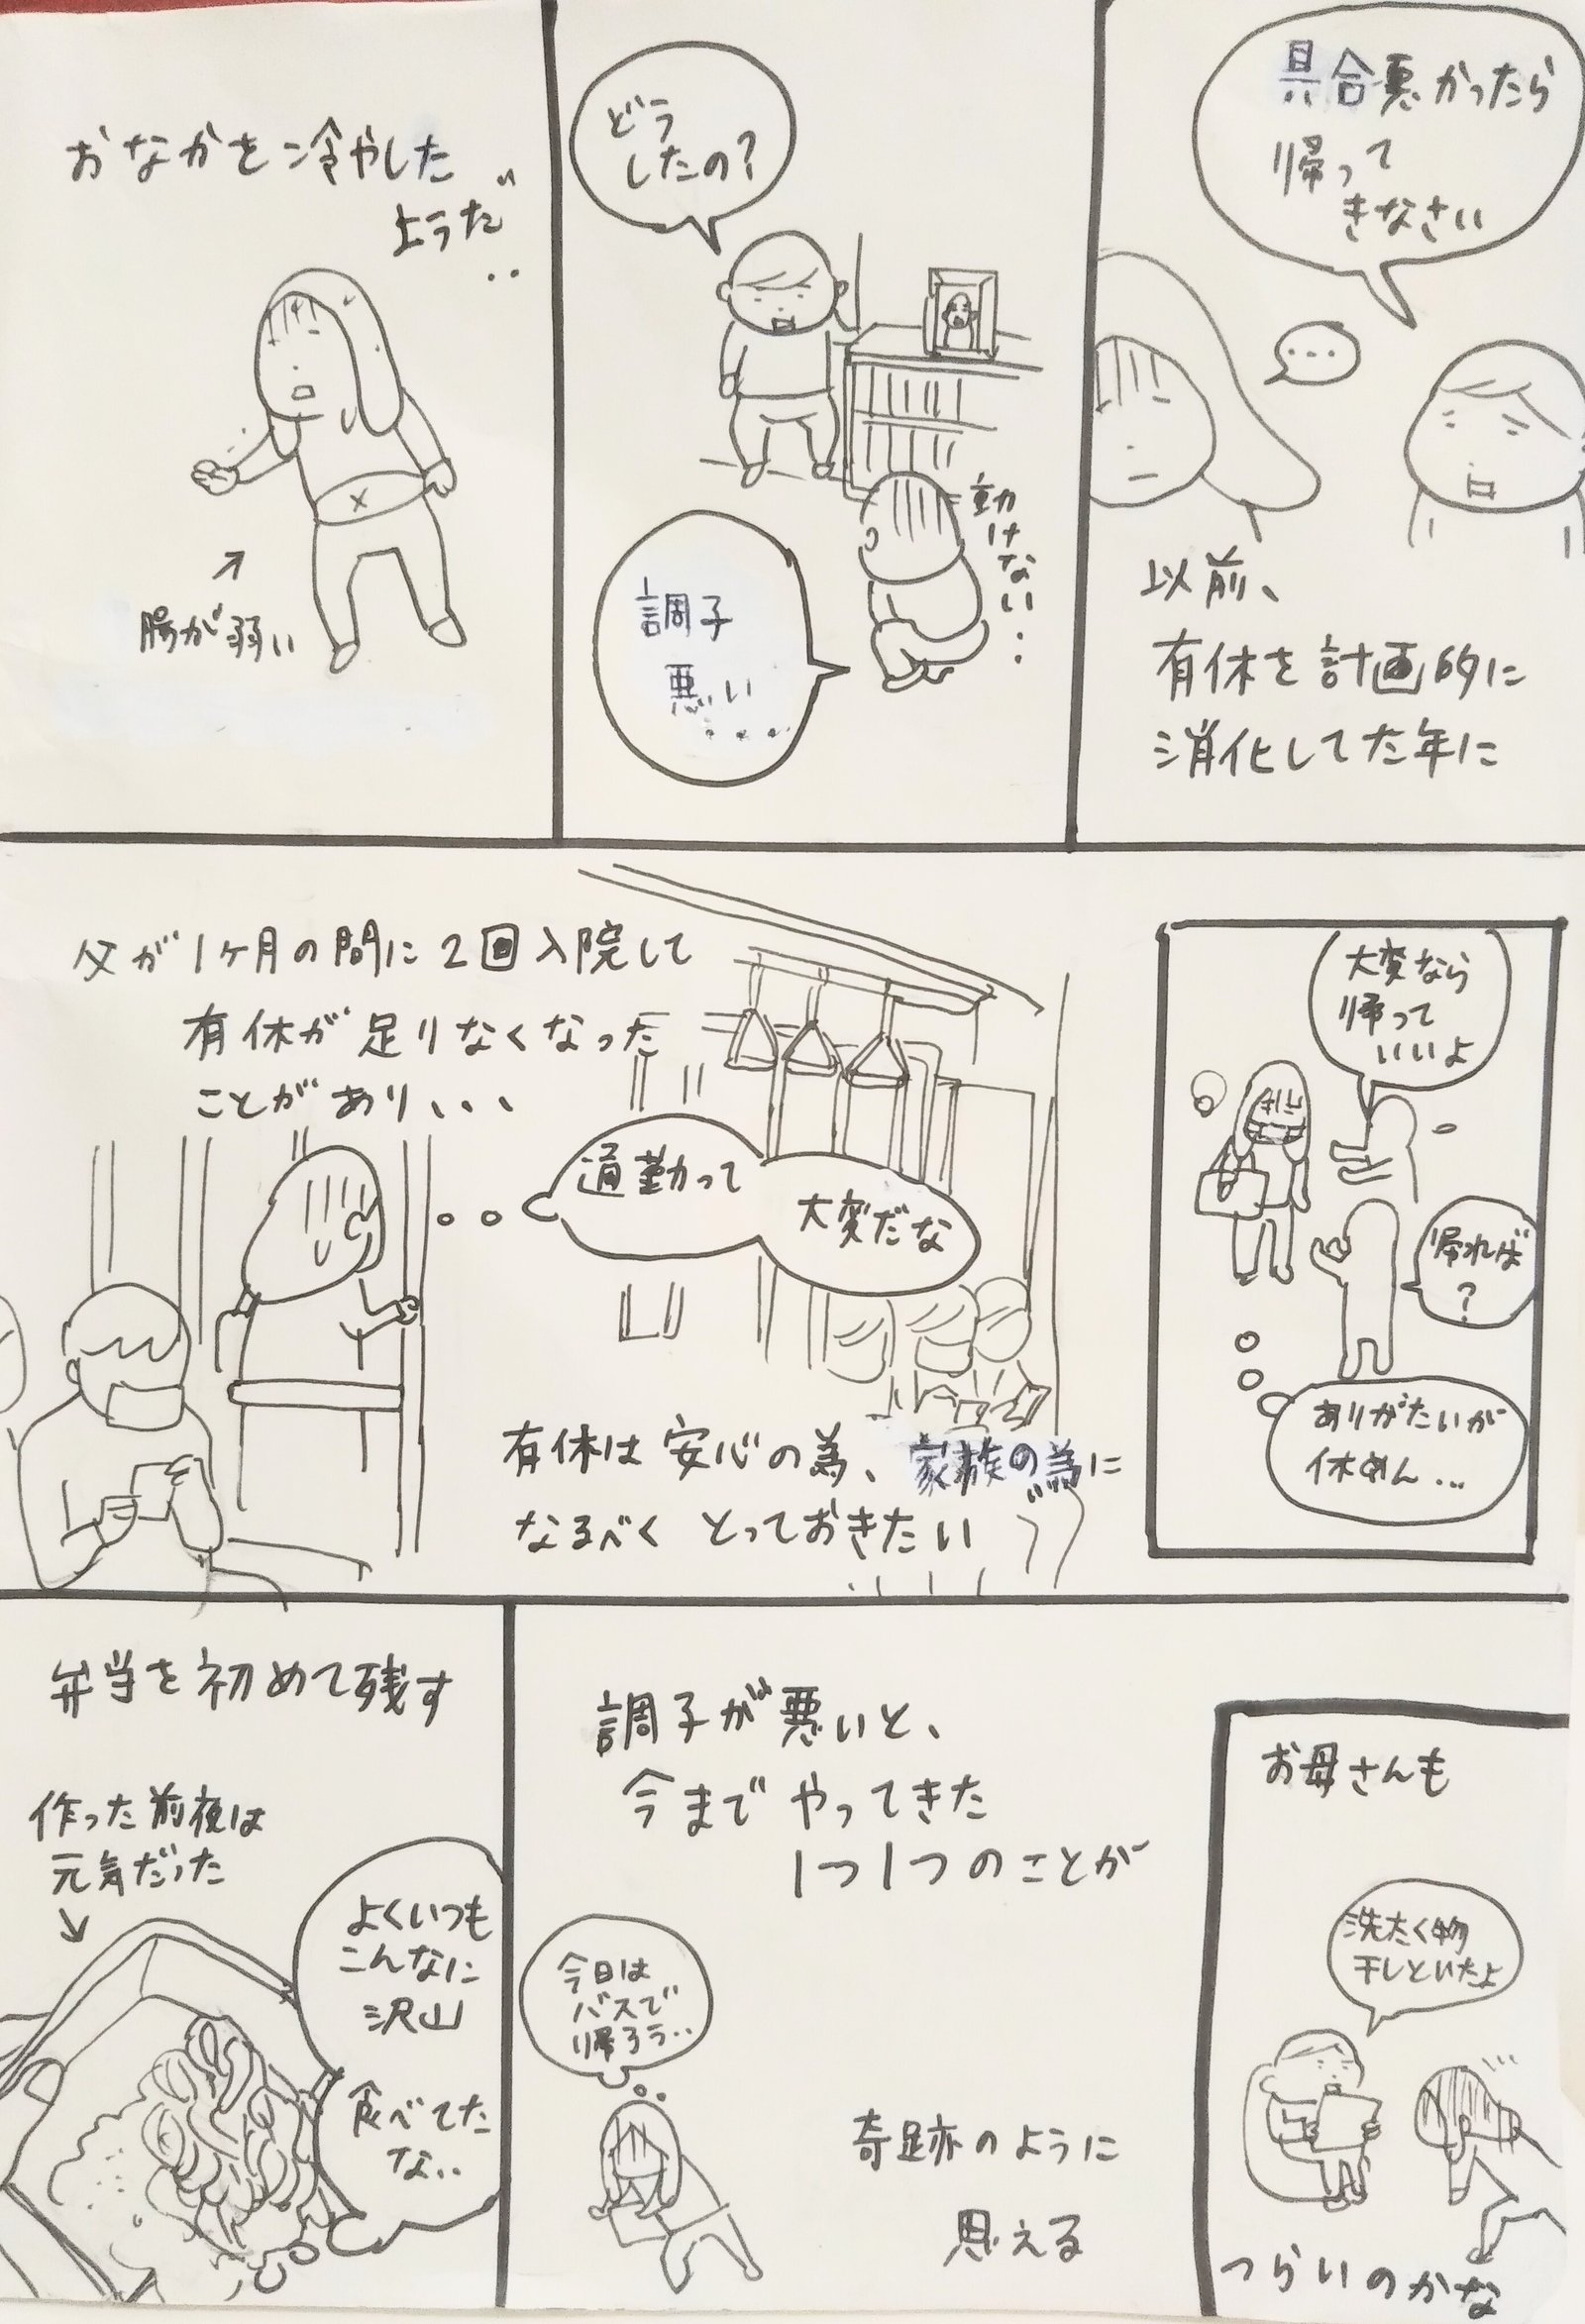 おなかを冷やした
ようだ‥
腸が弱い
どう
したの?
動けない‥
調子
悪い
....
具合悪かったら
帰って
きなさい
...
以前、
有休を計画的に
消化してた年に
父が1ヶ月の間に2回入院して
有休が足りなくなった
ことがあり、、、
通勤って
大変だな
有休は安心の為、家族の為に
なるべくとっておきたい
大変なら
帰って
いいよ
帰れば
?
ありがたいが
休めん...
弁当を初めて残す
作った前夜は
元気だった
よくいつも
こんなに
沢山
食べてた
な‥
調子が悪いと、
今までやってきた
1つ1つのことが
今日は
バスで
帰ろう‥
奇跡のように
思える
お母さんも
洗たく物
干しといたよ
つらいのかな